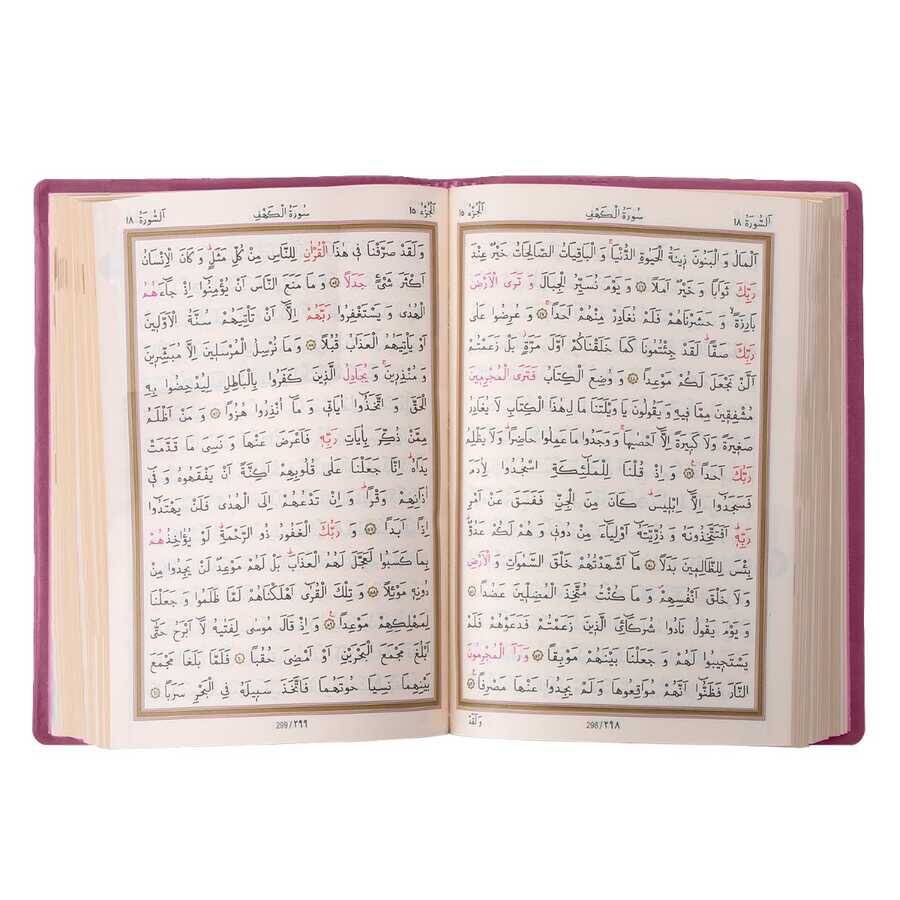 اَلسُّورَةُ ١٨
سُورَةُ الْكَهْفِ
اَلْجُزْءُ ١٥
اَلْمَالُ وَ الْبَنُونَ زٖينَةُ الْحَيٰوةِ الدُّنْيَا وَ الْبَاقِيَاتُ الصَّالِحَاتُ خَيْرٌ عِنْدَ
رَبِّكَ ثَوَابًا وَ خَيْرٌ اَمَلًا ﴿٤٦﴾ وَ يَوْمَ نُسَيِّرُ الْجِبَالَ وَ تَرَى الْاَرْضَ
بَارِزَةً وَ حَشَرْنَاهُمْ فَلَمْ نُغَادِرْ مِنْهُمْ اَحَدًا ﴿٤٧﴾ وَ عُرِضُوا عَلٰى
رَبِّكَ صَفًّا لَقَدْ جِئْتُمُونَا كَمَا خَلَقْنَاكُمْ اَوَّلَ مَرَّةٍ بَلْ زَعَمْتُمْ
اَلَّنْ نَجْعَلَ لَكُمْ مَوْعِدًا ﴿٤٨﴾ وَ وُضِعَ الْكِتَابُ فَتَرَى الْمُجْرِمٖينَ
مُشْفِقٖينَ مِمَّا فٖيهِ وَ يَقُولُونَ يَا وَيْلَتَنَا مَا لِهٰذَا الْكِتَابِ لَا يُغَادِرُ
صَغٖيرَةً وَ لَا كَبٖيرَةً اِلَّٓا اَحْصٰيهَا وَ وَجَدُوا مَا عَمِلُوا حَاضِرًا وَ لَا يَظْلِمُ
رَبُّكَ اَحَدًا ﴿٤٩﴾ وَ اِذْ قُلْنَا لِلْمَلٰٓئِكَةِ اسْجُدُوا لِاٰدَمَ
فَسَجَدُٓوا اِلَّٓا اِبْلٖيسَ كَانَ مِنَ الْجِنِّ فَفَسَقَ عَنْ اَمْرِ
رَبِّهٖ اَفَتَتَّخِذُونَهُ وَ ذُرِّيَّتَهُٓ اَوْلِيَٓاءَ مِنْ دُونٖى وَ هُمْ لَكُمْ عَدُوٌّ
بِئْسَ لِلظَّالِمٖينَ بَدَلًا ﴿٥٠﴾ مَٓا اَشْهَدْتُهُمْ خَلْقَ السَّمٰوَاتِ وَ الْاَرْضِ
وَ لَا خَلْقَ اَنْفُسِهِمْ وَ مَا كُنْتُ مُتَّخِذَ الْمُضِلّٖينَ عَضُدًا ﴿٥١﴾
وَ يَوْمَ يَقُولُ نَادُوا شُرَكَٓائِىَ الَّذٖينَ زَعَمْتُمْ فَدَعَوْهُمْ فَلَمْ
يَسْتَجٖيبُوا لَهُمْ وَ جَعَلْنَا بَيْنَهُمْ مَوْبِقًا ﴿٥٢﴾ وَ رَاَ الْمُجْرِمُونَ
النَّارَ فَظَنُّٓوا اَنَّهُمْ مُوَاقِعُوهَا وَ لَمْ يَجِدُوا عَنْهَا مَصْرِفًا ﴿٥٣﴾
298/٢٩٨
وَ لَقَدْ
اَلْجُزْءُ ١٥
سُورَةُ الْكَهْفِ
اَلسُّورَةُ ١٨
وَ لَقَدْ صَرَّفْنَا فٖى هٰذَا الْقُرْاٰنِ لِلنَّاسِ مِنْ كُلِّ مَثَلٍ وَ كَانَ الْاِنْسَانُ
اَكْثَرَ شَىْءٍ جَدَلًا ﴿٥٤﴾ وَ مَا مَنَعَ النَّاسَ اَنْ يُؤْمِنُٓوا اِذْ جَٓاءَهُمُ
الْهُدٰى وَ يَسْتَغْفِرُوا رَبَّهُمْ اِلَّٓا اَنْ تَاْتِيَهُمْ سُنَّةُ الْاَوَّلٖينَ
اَوْ يَاْتِيَهُمُ الْعَذَابُ قُبُلًا ﴿٥٥﴾ وَ مَا نُرْسِلُ الْمُرْسَلٖينَ اِلَّا مُبَشِّرٖينَ
وَ مُنْذِرٖينَ وَ يُجَادِلُ الَّذٖينَ كَفَرُوا بِالْبَاطِلِ لِيُدْحِضُوا بِهِ
الْحَقَّ وَ اتَّخَذُٓوا اٰيَاتٖى وَ مَٓا اُنْذِرُوا هُزُوًا ﴿٥٦﴾ وَ مَنْ اَظْلَمُ
مِمَّنْ ذُكِّرَ بِاٰيَاتِ رَبِّهٖ فَاَعْرَضَ عَنْهَا وَ نَسِىَ مَا قَدَّمَتْ
يَدَاهُ اِنَّا جَعَلْنَا عَلٰى قُلُوبِهِمْ اَكِنَّةً اَنْ يَفْقَهُوهُ وَ فٖٓى
اٰذَانِهِمْ وَقْرًا وَ اِنْ تَدْعُهُمْ اِلَى الْهُدٰى فَلَنْ يَهْتَدُٓوا
اِذًا اَبَدًا ﴿٥٧﴾ وَ رَبُّكَ الْغَفُورُ ذُو الرَّحْمَةِ لَوْ يُؤَاخِذُهُمْ
بِمَا كَسَبُوا لَعَجَّلَ لَهُمُ الْعَذَابَ بَلْ لَهُمْ مَوْعِدٌ لَنْ يَجِدُوا مِنْ
دُونِهٖ مَوْئِلًا ﴿٥٨﴾ وَ تِلْكَ الْقُرٰٓى اَهْلَكْنَاهُمْ لَمَّا ظَلَمُوا وَ جَعَلْنَا
لِمَهْلِكِهِمْ مَوْعِدًا ﴿٥٩﴾ وَ اِذْ قَالَ مُوسٰى لِفَتٰيهُ لَٓا اَبْرَحُ حَتّٰٓى
اَبْلُغَ مَجْمَعَ الْبَحْرَيْنِ اَوْ اَمْضِىَ حُقُبًا ﴿٦٠﴾ فَلَمَّا بَلَغَا مَجْمَعَ
بَيْنِهِمَا نَسِيَا حُوتَهُمَا فَاتَّخَذَ سَبٖيلَهُ فِى الْبَحْرِ سَرَبًا ﴿٦١﴾
299/٢٩٩